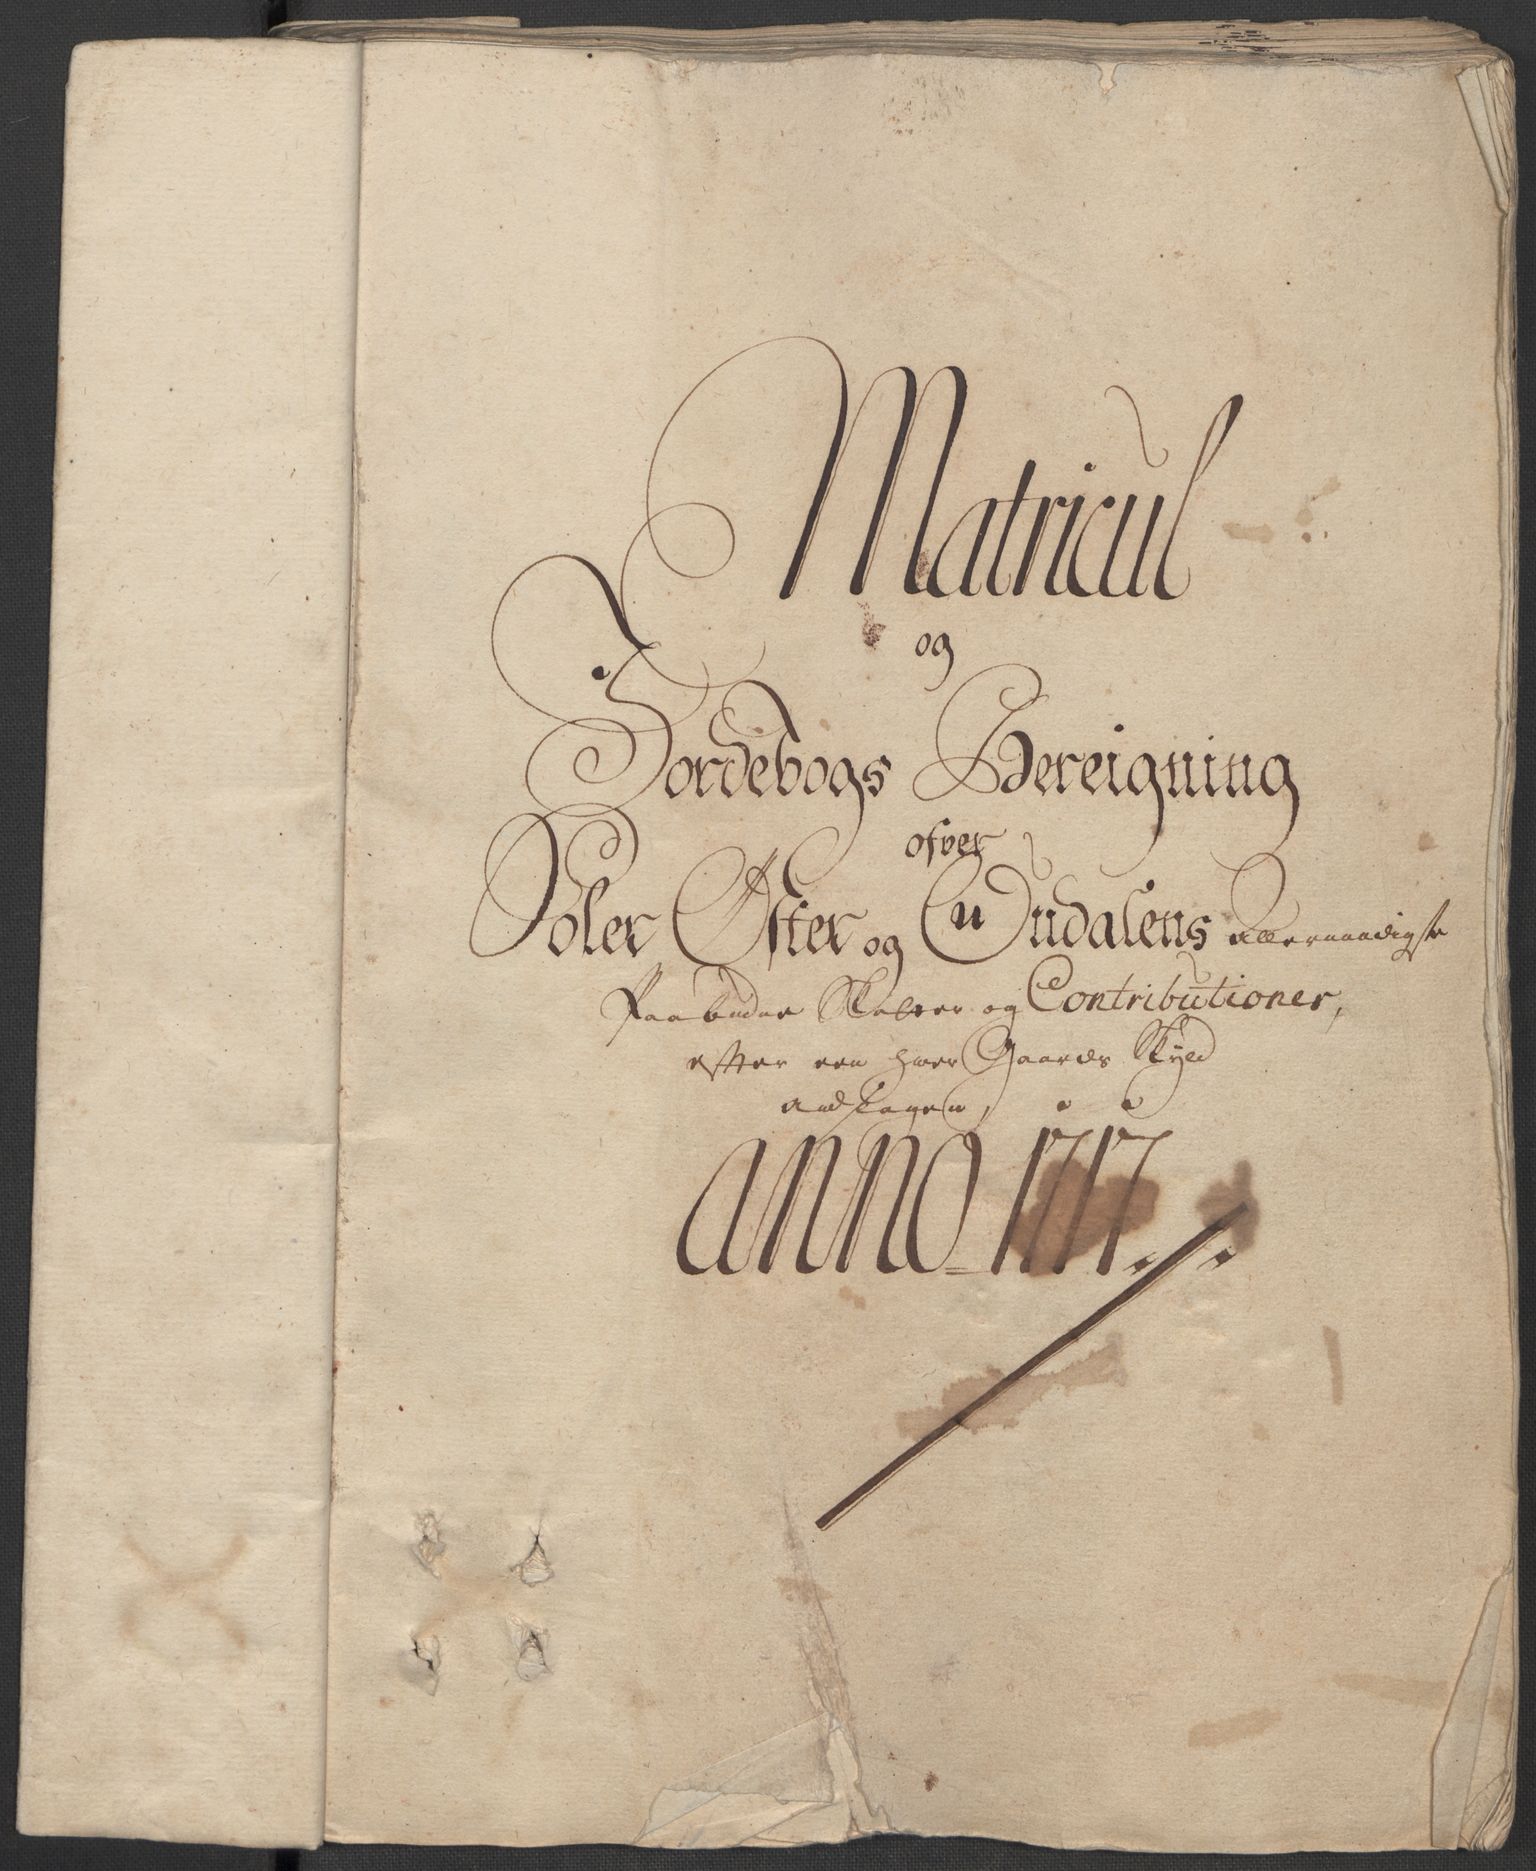 Matricul
og
Jordebogs Bereigning
ofver
Soler Øster og Oudalens Allernaadigste
Paabudne Skatter og Contributioner,
efter een hver Gaards Skyld
andragen,
anno 1717.